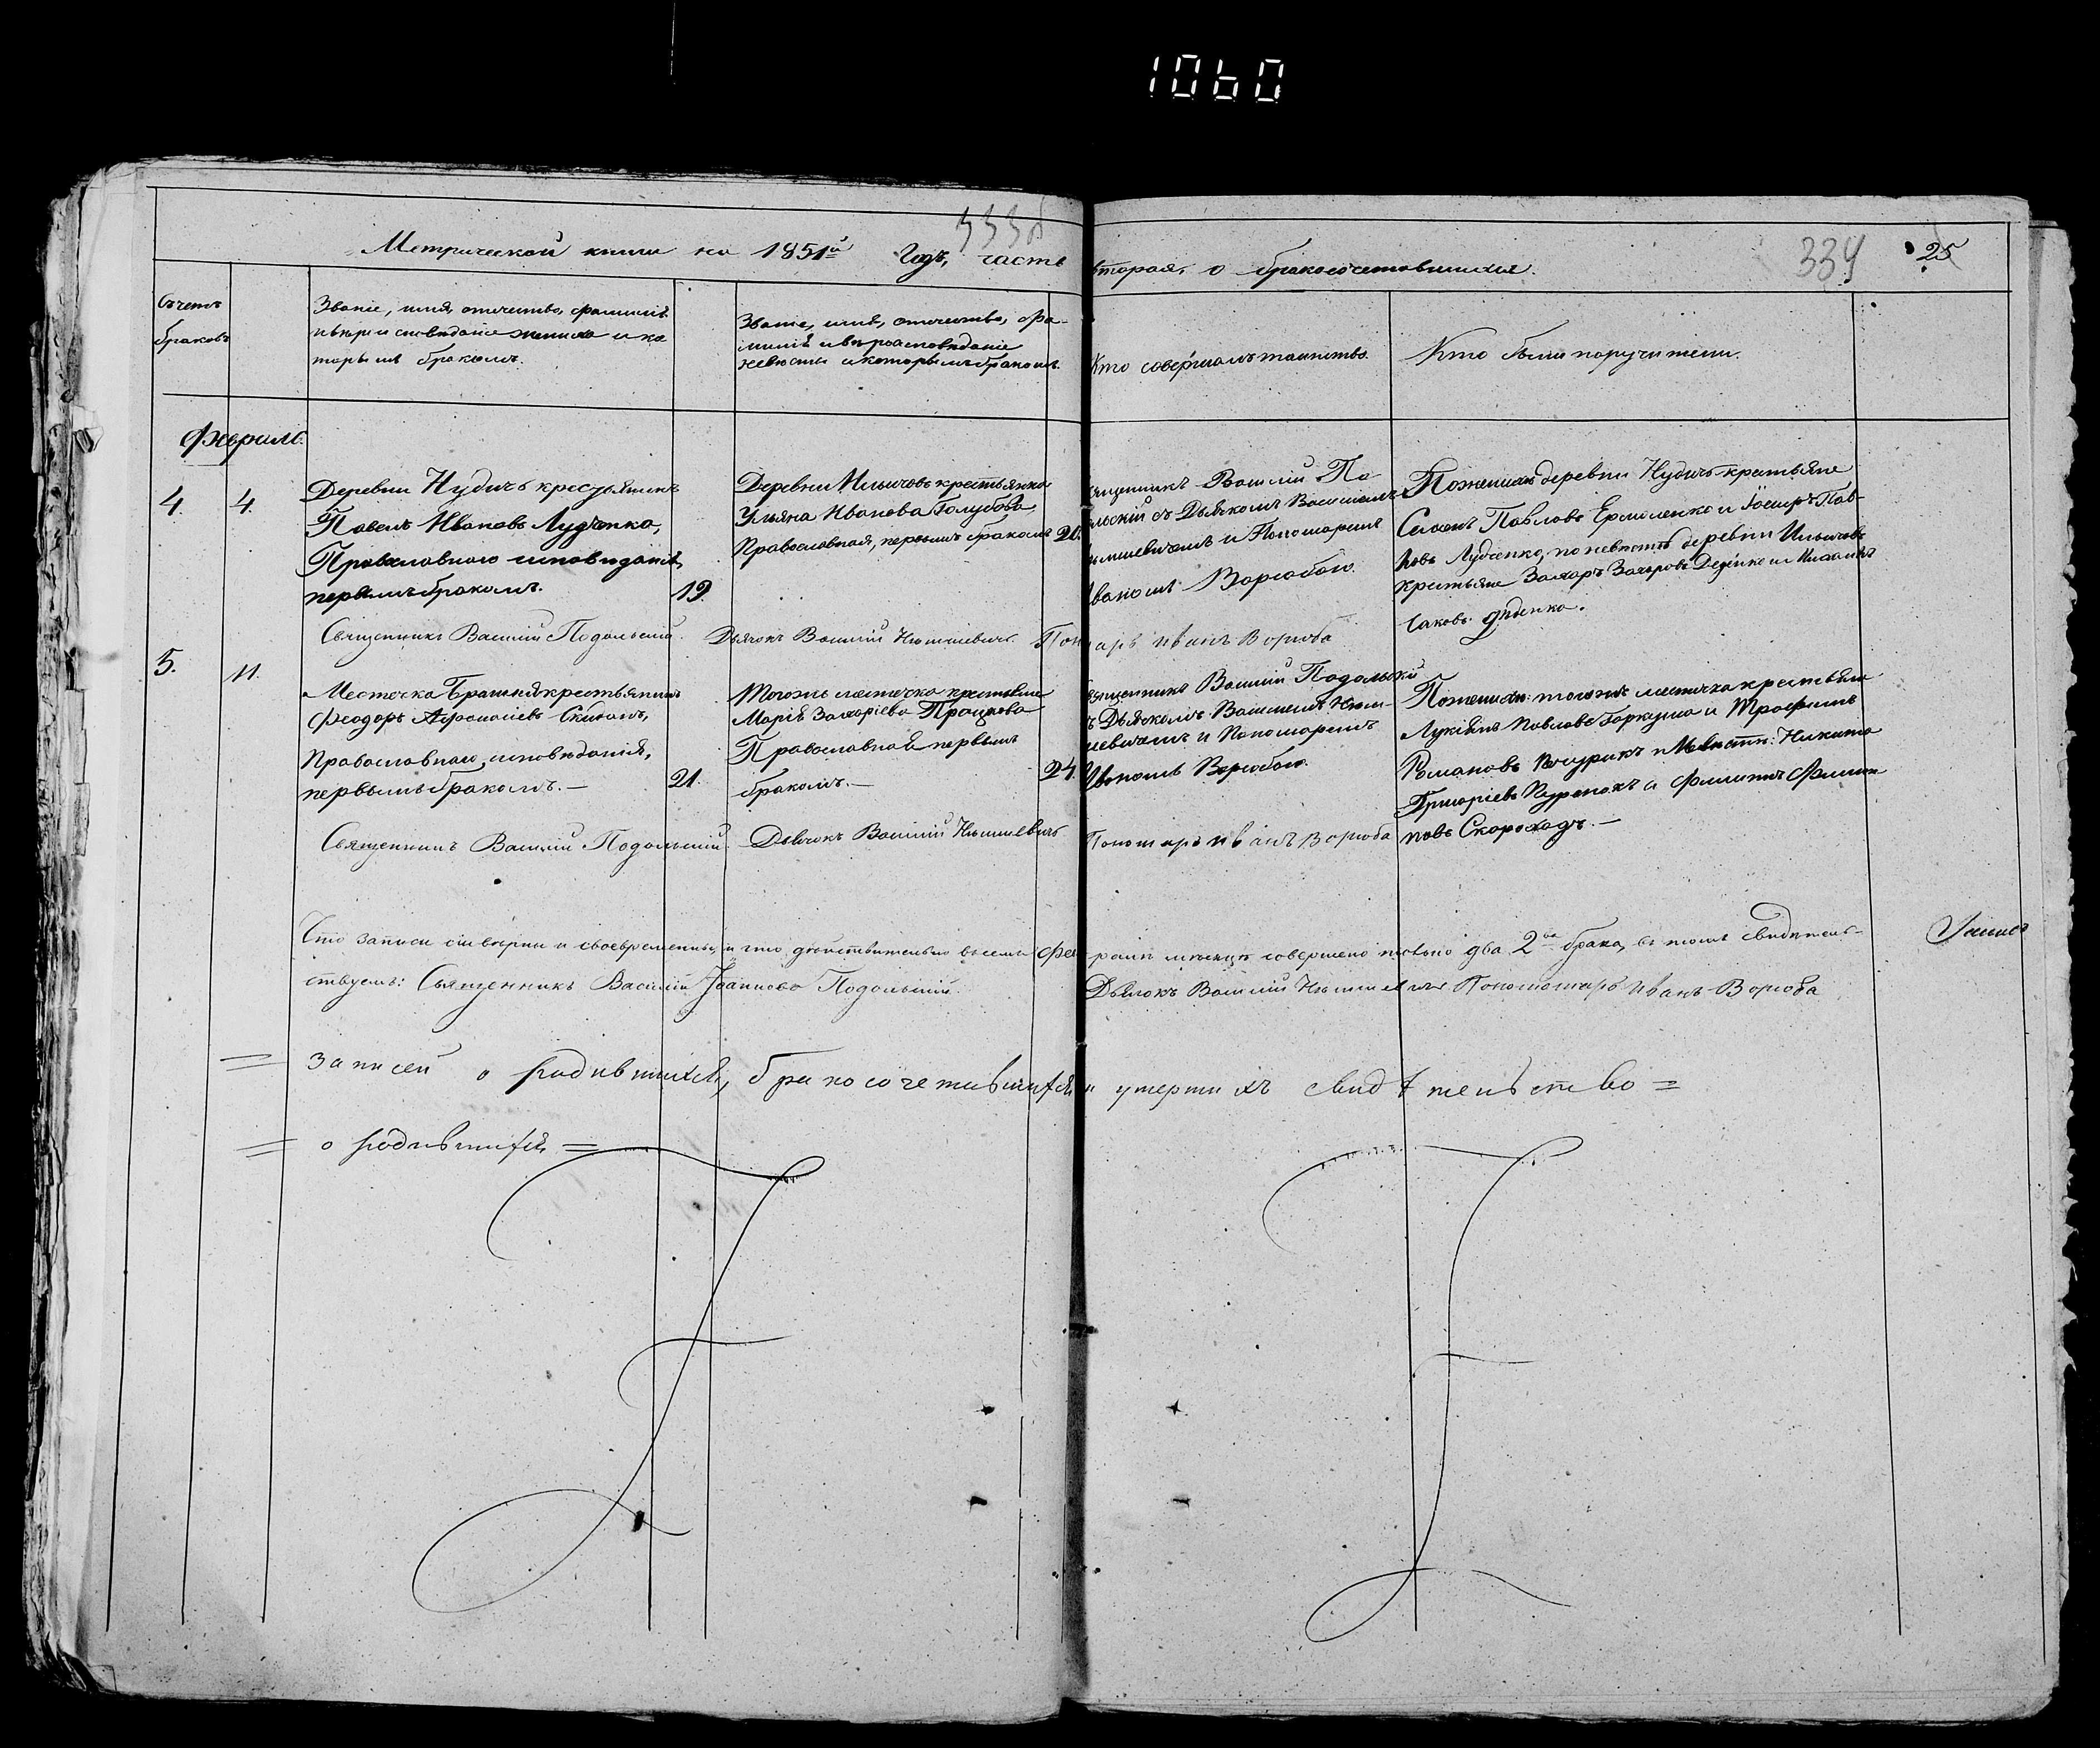 1060
333об
Метрической книги на 1851й Годъ, часть вторая, о бракосочетавшихся.
334 25
Счетъ браковъ
Званіе, имя, отчество, фамилія
и вѣроисповѣданіе жениха и ко
торымъ бракомъ.
Званіе, имя, отчество, фа-
милія и вѣроисповѣданіе
невѣсты и которымъ бракомъ.
Кто совершалъ таинство.
Кто были поручители.
Февраль.
4. 4.
Деревни Нудичъ крестьянинъ
Павелъ Ивановъ Лудченко,
Православнаго исповѣданія,
первымъ бракомъ.
19.
Деревни Ильичовъ крестьянка
Ульяна Иванова Голубова,
Православная, первымъ бракомъ
20.
Священникъ Василій По-
дольскій съ Дьячкомъ Василіемъ
и Пономаремъ
Иваномъ Воробою.
По женихѣ деревни Нудичъ крестьяне
Семенъ Павловъ Ермоленко и Іосифъ Пав-
ловъ Лудченко, по невѣстѣ деревни Ильичовъ
крестьяне Захаръ Захаровъ
Священникъ Василій Подольскій. Дьячокъ Василій Пономарь Иванъ Вороба
5. 11.
Местечка Брагиня крестьянинъ
Феодоръ Афанасіевъ
Православнаго исповѣданія,
первымъ бракомъ.—
21.
Тогожъ местечка крестьянка
Марія Захаріева Процкова
Православная первымъ
бракомъ.—
24.
Священникъ Василій Подольскій
съ Дьячкомъ Василіемъ
и Пономаремъ
Иваномъ Воробою.
По женихѣ: тогожъ местечка крестьяне
Лукіянъ Павловъ Горкуша и Трофимъ
Романовъ по невѣстѣ: Никита
Григоріевъ и Филипъ Филип
повъ Скороходъ.—
Священникъ Василій Подольскій. Дьячокъ Василій Пономарь Иванъ Вороба
Что записи сіи вѣрны и своевременны, и что дѣйствительно въ семъ февралѣ мѣсяцѣ совершено только два 2ва брака, въ томъ свидѣтель-
ствуемъ: Священникъ Василій Іоанновъ Подольскій. Дьячокъ Василій Пономарь Иванъ Вороба
= записей о родившихся, бракосочетавшихся и умершихъ свидѣтельство =
= о родившихся =